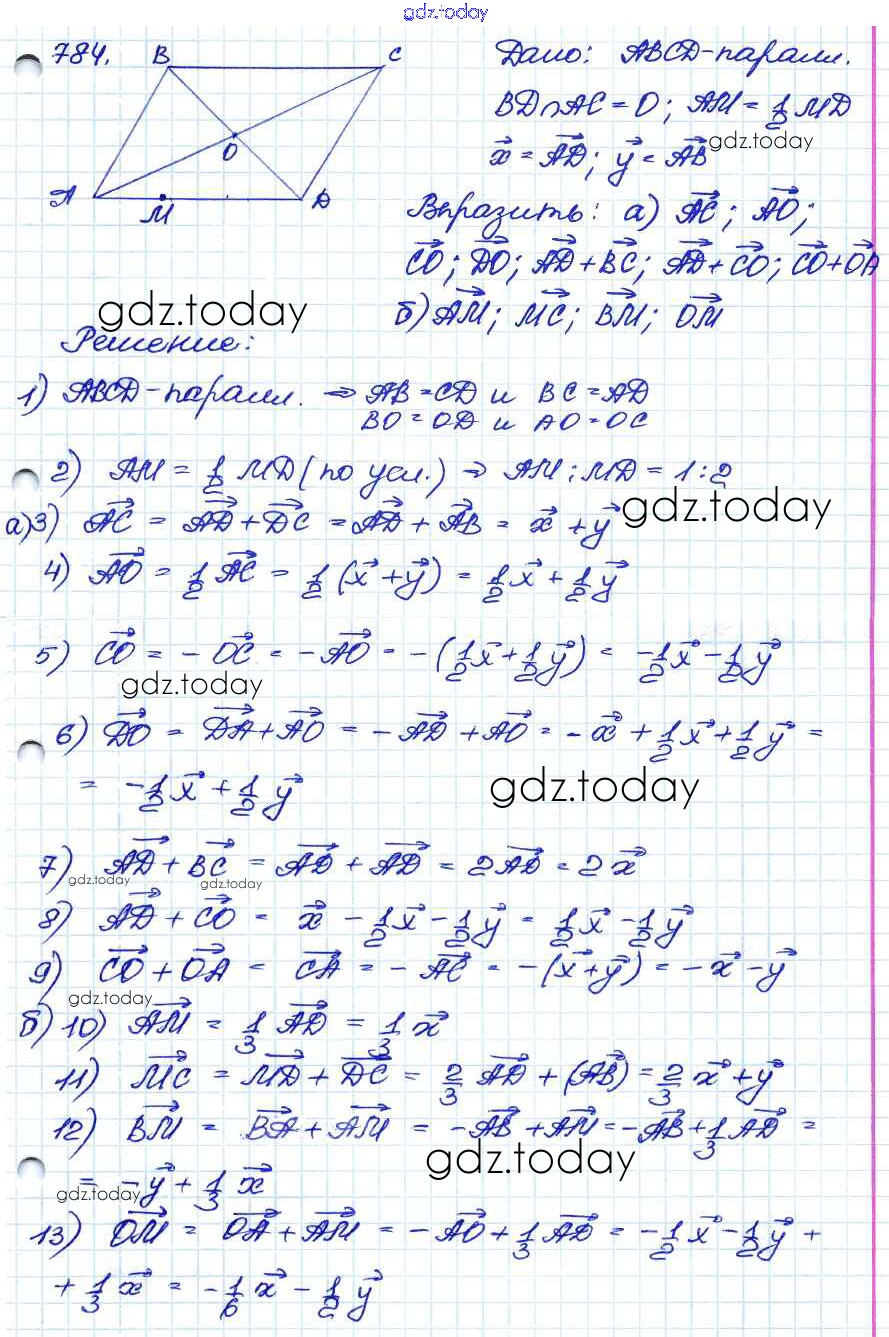 gdz.today
784. B C Дано: ABCD-паралл.
BD∩AC = O; AM = 1/2 MD
gdz.today
x⃗ = AD⃗; y⃗ = AB⃗
O
A M D
Выразить: а) AC⃗; AO⃗;
CO⃗; DO⃗; AD⃗+BC⃗; AD⃗+CO⃗; CO⃗+OA⃗
gdz.today
б) AM⃗; MC⃗; BM⃗; OM⃗
Решение:
1) ABCD-паралл. ⇒ AB = CD и BC = AD
BO = OD и AO = OC
2) AM = 1/2 MD (по усл.) ⇒ AM : MD = 1:2
gdz.today
а)3) AC⃗ = AD⃗+DC⃗ = AD⃗ + AB⃗ = x⃗ + y⃗
4) AO⃗ = 1/2 AC⃗ = 1/2 (x⃗+y⃗) = 1/2 x⃗ + 1/2 y⃗
5) CO⃗ = - OC⃗ = - AO⃗ = -(1/2 x⃗+1/2 y⃗) = -1/2 x⃗ - 1/2 y⃗
gdz.today
6) DO⃗ = DA⃗+AO⃗ = - AD⃗ + AO⃗ = - x⃗ + 1/2 x⃗ + 1/2 y⃗ =
= -1/2 x⃗ + 1/2 y⃗
gdz.today
7) AD⃗ + BC⃗ = AD⃗ + AD⃗ = 2AD⃗ = 2x⃗
gdz.today gdz.today
8) AD⃗ + CO⃗ = x⃗ - 1/2 x⃗ - 1/2 y⃗ = 1/2 x⃗ - 1/2 y⃗
9) CO⃗ + OA⃗ = CA⃗ = - AC⃗ = -(x⃗+y⃗) = - x⃗ - y⃗
gdz.today
б) 10) AM⃗ = 1/3 AD⃗ = 1/3 x⃗
11) MC⃗ = MD⃗ + DC⃗ = 2/3 AD⃗ + (AB⃗) = 2/3 x⃗ + y⃗
12) BM⃗ = BA⃗ + AM⃗ = - AB⃗ + AM⃗ = - AB⃗ + 1/3 AD⃗ =
gdz.today
= - y⃗ + 1/3 x⃗
gdz.today
13) OM⃗ = OA⃗ + AM⃗ = - AO⃗ + 1/3 AD⃗ = -1/2 x⃗ - 1/2 y⃗ +
+ 1/3 x⃗ = - 1/6 x⃗ - 1/2 y⃗